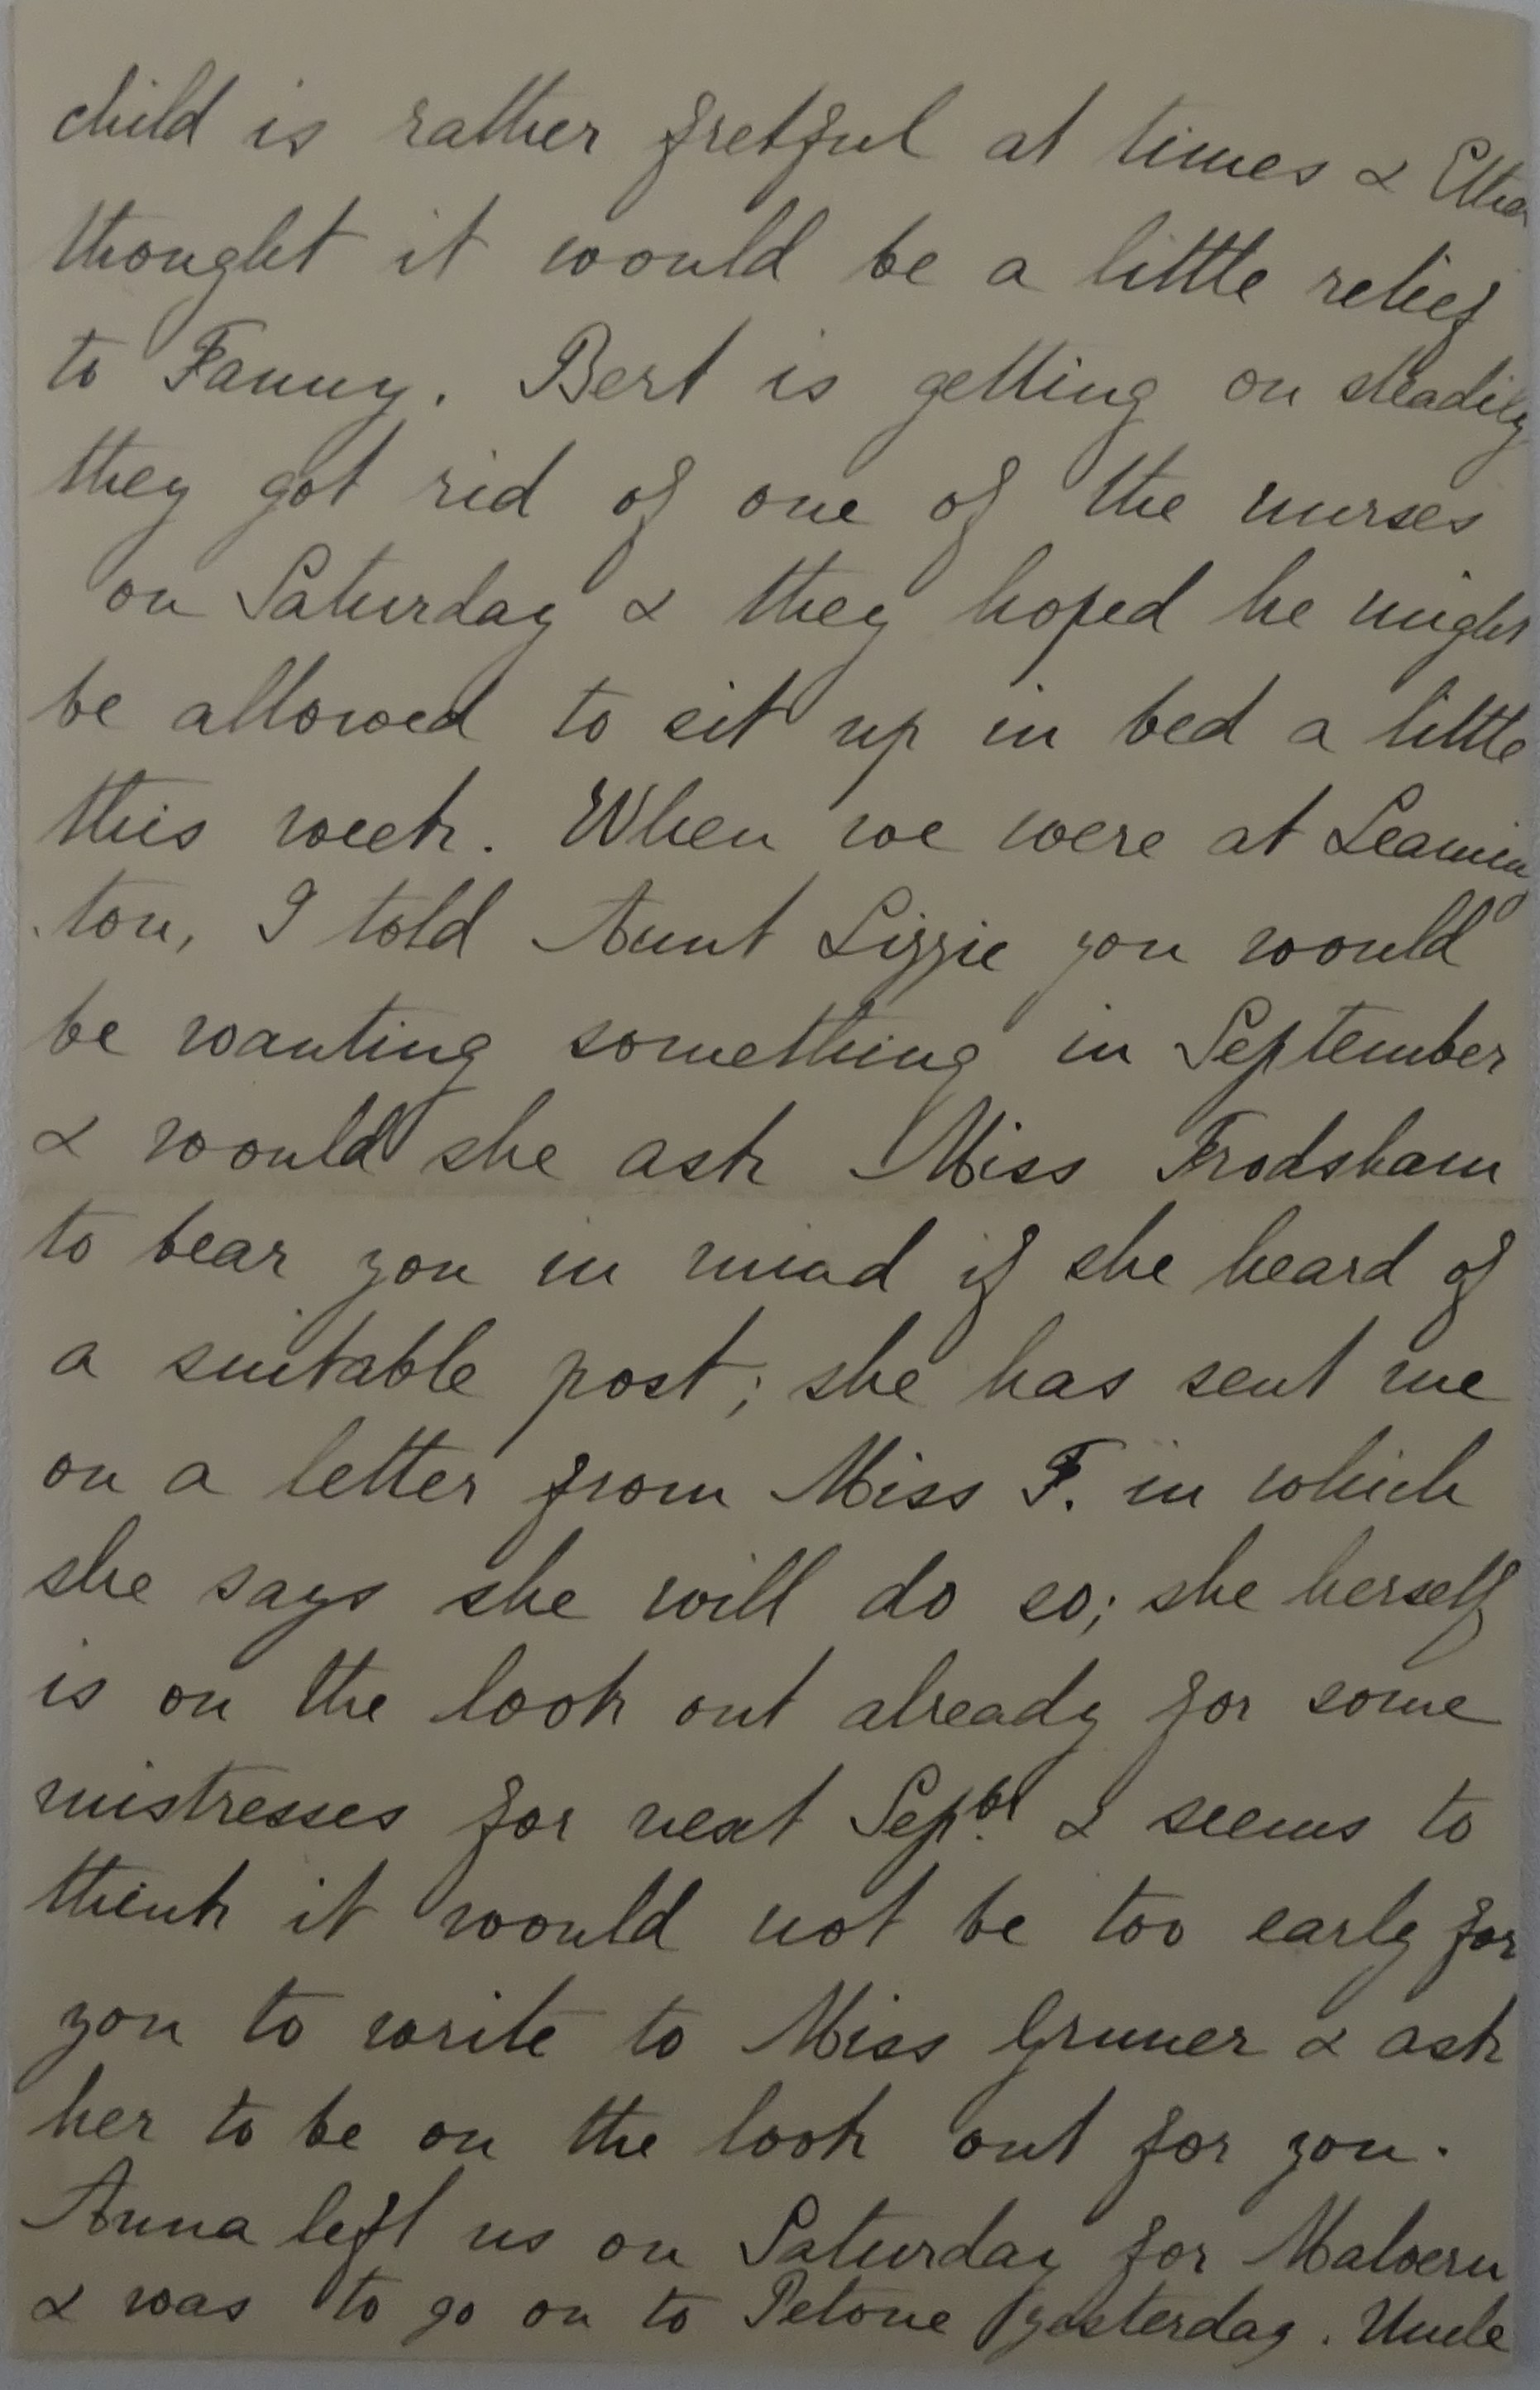 child is rather fretful at times &
thought it would be a little relief
to Fanny. Bert is getting on steadily
they got rid of one of the nurses
on Saturday & they hoped he might
be allowed to sit up in bed a little
this week. When we were at Leaming
ton, I told Aunt Lizzie you would
be wanting something in September
& would she ask Miss Frodsham
to bear you in mind if she heard of
a suitable post; she has sent me
on a letter from Miss F. in which
she says she will do so; she herself
is on the look out already for some
mistresses for next Sepbr. & seems to
think it would not be too early for
you to write to Miss Gruner & ask
her to be on the look out for you.
Anna left us on Saturday for Malvern
& was to go on to Petone yesterday. Uncle